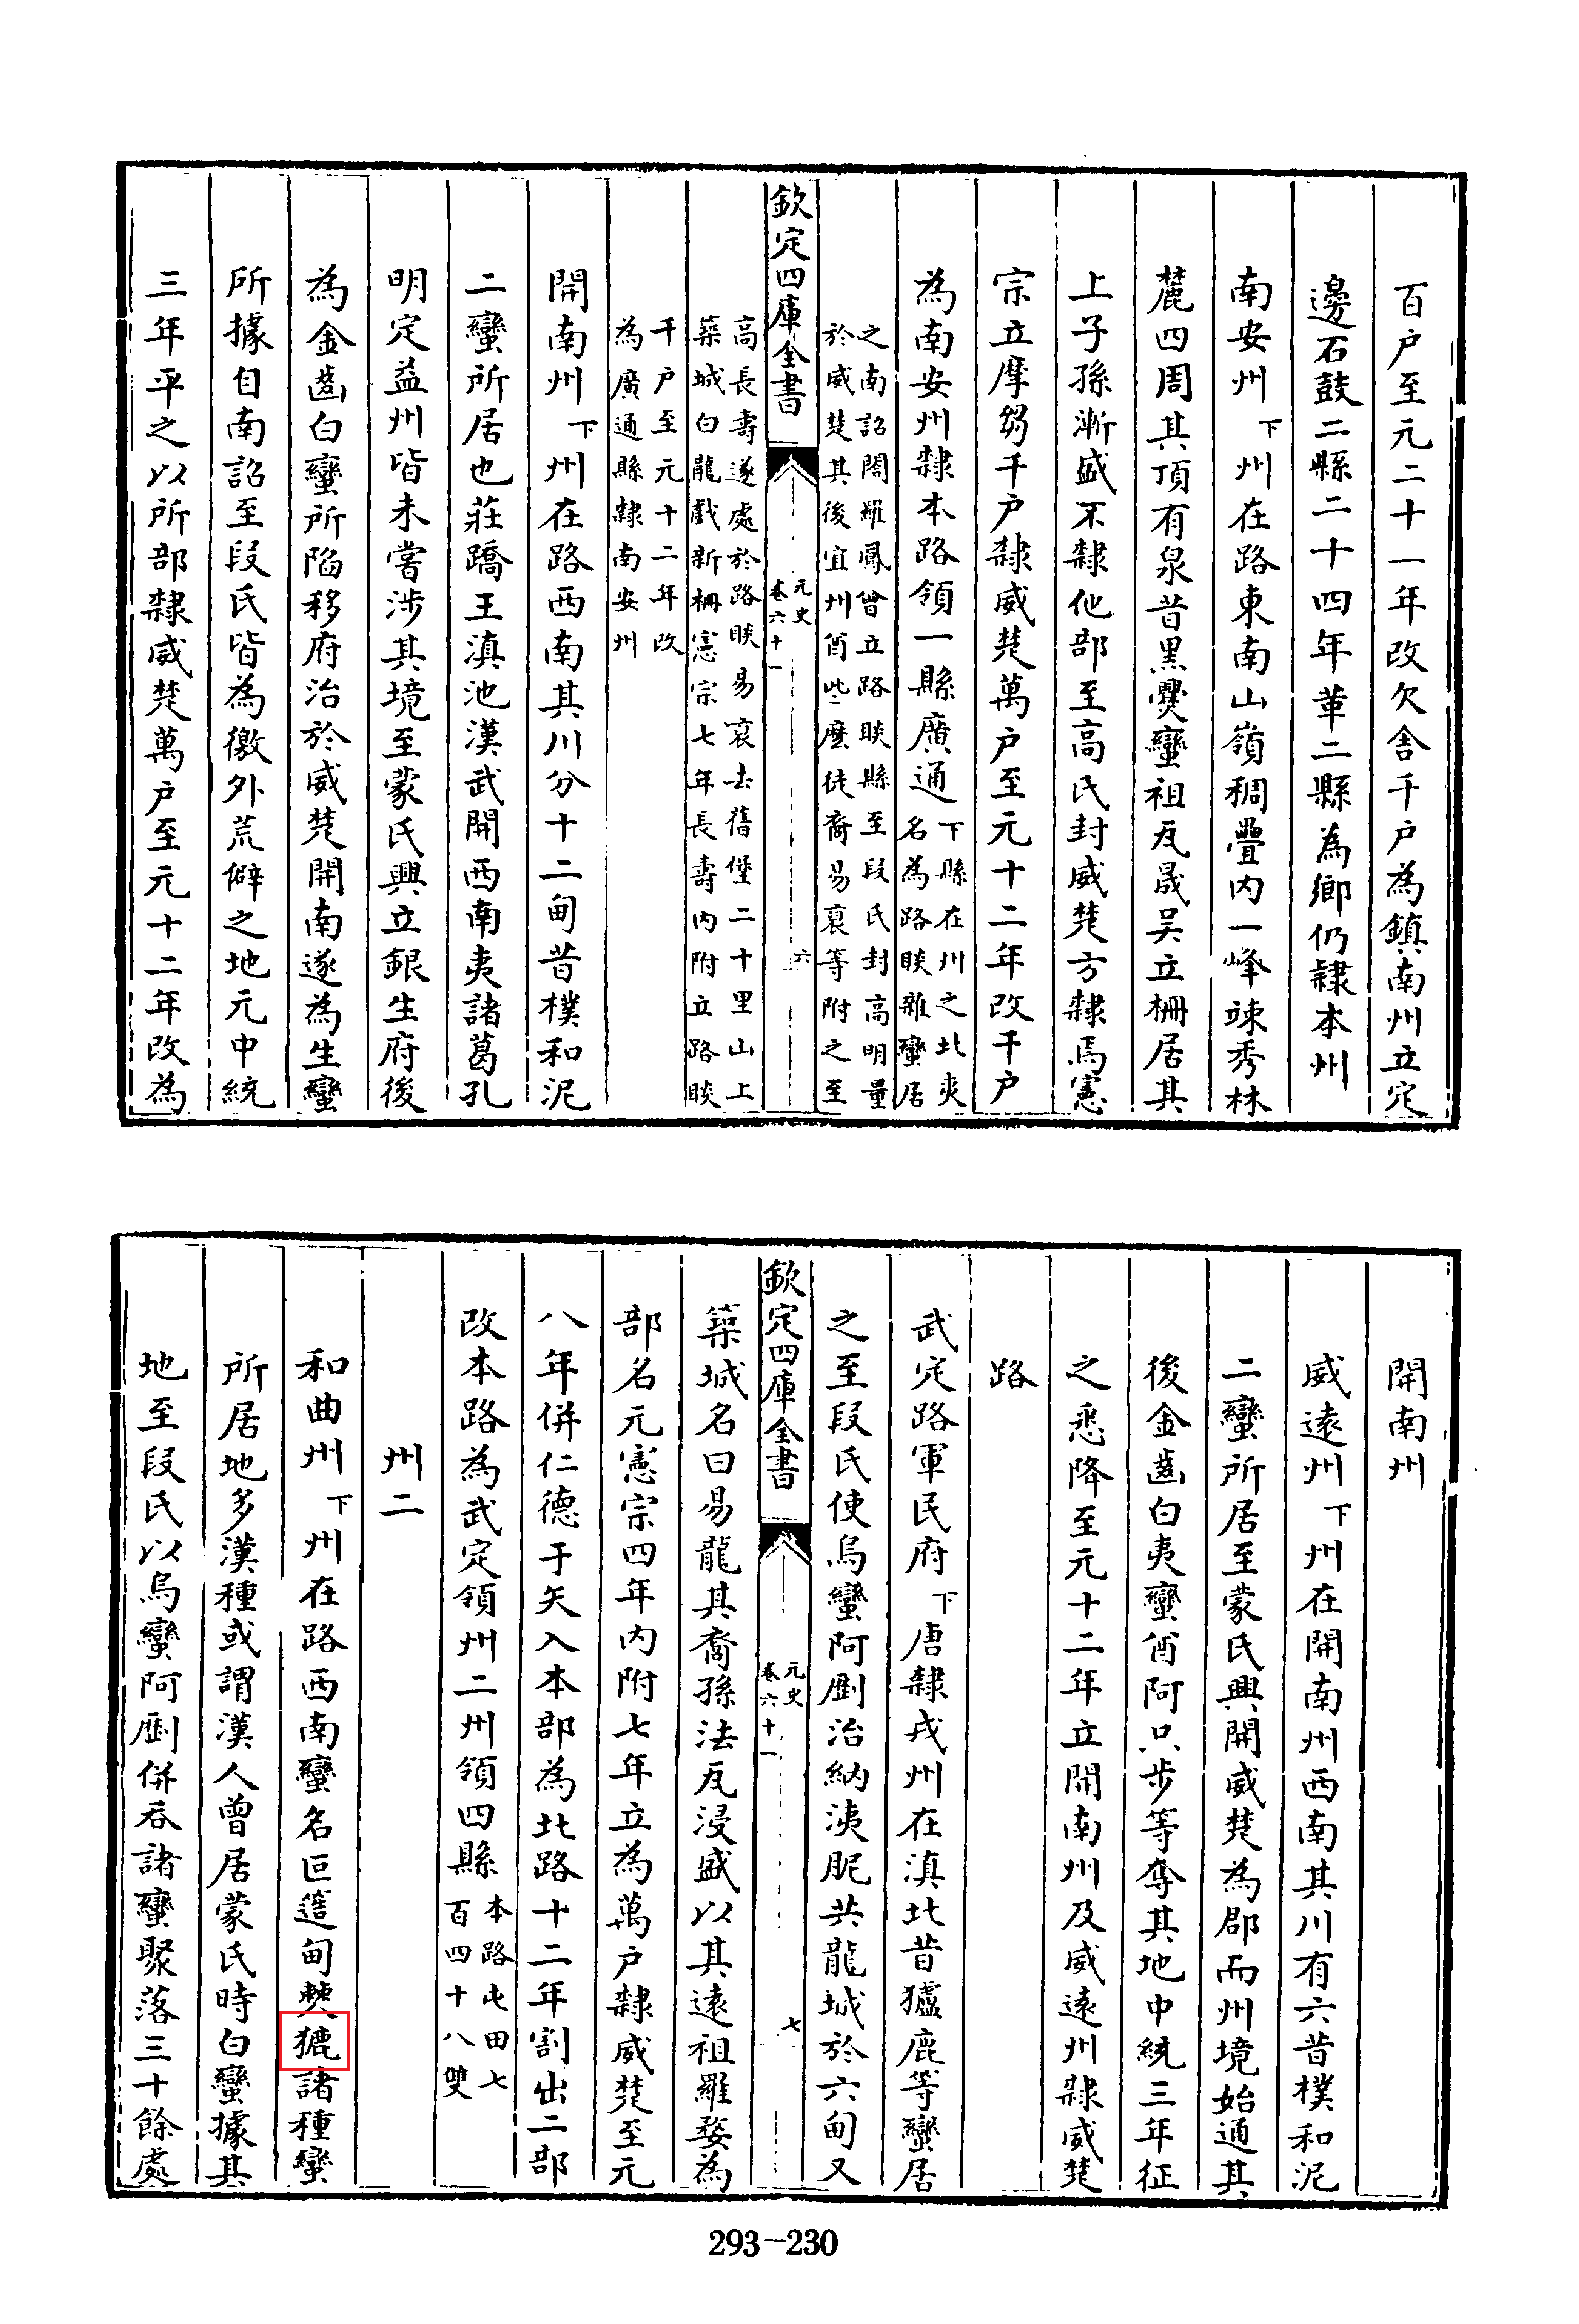 百户至元二十一年改欠舍千户為鎮南州立定
邊石鼓二縣二十四年革二縣為鄉仍隸本州
南安州下州在路東南山嶺稠疊内一峰竦秀林
麓四周其頂有泉昔黑爨蠻祖瓦晟吴立柵居其
上子孫漸盛不隸他部至高氏封威楚方隸焉憲
宗立摩芻千户隸威楚萬户至元十二年改千户
為南安州隸本路領一縣廣通下縣在州之北夾
名為路賧雜蠻居
之南詔閤羅鳳曾立路賧縣至段氏封高明量
於威楚其後宜州酋些麽徒裔易裒等附之至
欽定四庫全書
元史
卷六十一
六
高長壽遂處於路賧易裒去舊堡二十里山上
築城曰龍戲新柵憲宗七年長壽内附立路賧
千户至元十二年改
為廣通縣隸南安州
開南州下州在路西南其川分十二甸昔樸和泥
二蠻所居也莊蹻王滇池漢武開西南夷諸葛孔
明定益州皆未嘗涉其境至蒙氏興立銀生府後
為金齒白蠻所陷移府治於威楚開南遂為生蠻
所據自南詔至段氏皆為徼外荒僻之地元中統
三年平之以所部隸威楚萬户至元十二年改為
開南州
威遠州下州在開南州西南其川有六昔樸和泥
二蠻所居至蒙氏興開威楚為郡而州境始通其
後金齒白夷蠻酋阿只步等奪其地中統三年征
之悉降至元十二年立開南州及威遠州隸威楚
路
武定路軍民府下唐隸戎州在滇北昔獹鹿等蠻居
之至段氏使烏蠻阿㓮治納洟胒共龍城於六甸又
欽定四庫全書
元史
卷六十一
七
築城名曰易龍其裔孫法瓦浸盛以其遠祖羅婺為
部名元憲宗四年内附七年立為萬户隸威楚至元
八年併仁德于矢入本部為北路十二年割出二部
改本路為武定領州二州領四縣本路屯田七
百四十八雙
州二
和曲州下州在路西南蠻名叵簉甸僰㹭諸種蠻
所居地多漢種或謂漢人曾居蒙氏時白蠻據其
地至段氏以烏蠻阿㓮併吞諸蠻聚落三十餘處
293-230